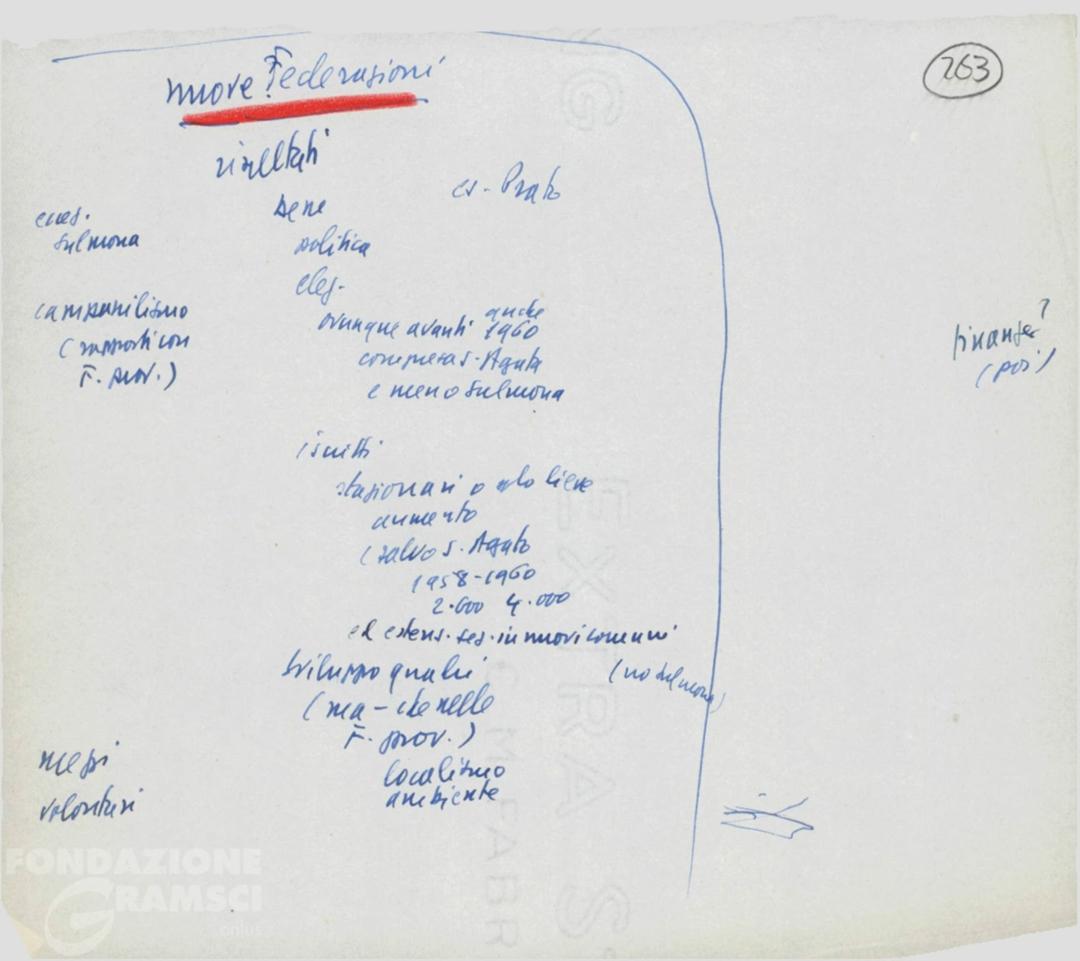 263
nuove Federazioni
risultati
es. Prato
bene
ecces.
Sulmona
politica
eleg.
campanilismo
(rapporti con
F. prov.)
ovunque avanti anche 1960
compresa S. Agata
e meno Sulmona
finanze?
(poi)
iscritti
stazionari o solo lieve
aumento
(salvo S. Agata
1958-1960
2.600 4.000
ed estens. sez. in nuovi comuni
(no Sulmona)
sviluppo quadri
(ma - che nelle
F. prov.)
mezzi
volontari
localismo
ambiente
EXTRA S
FABR
FONDAZIONE
GRAMSCI
onlus